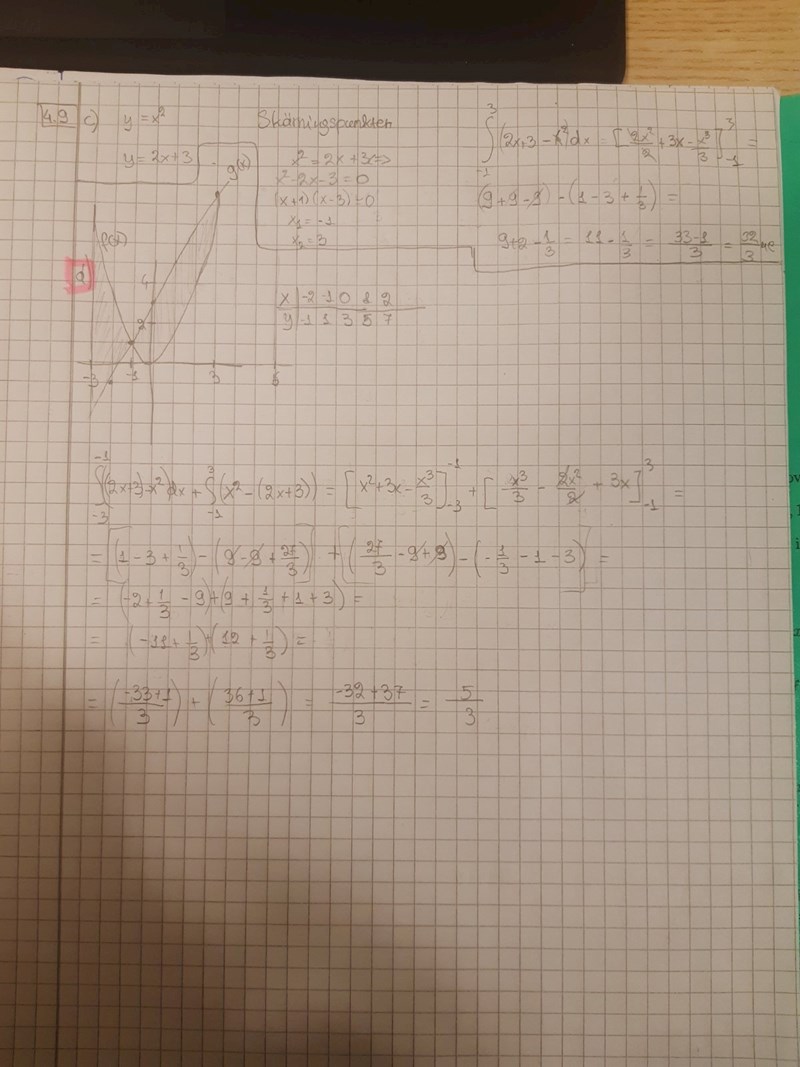 4.9 c) y = x²
y = 2x+3
Skärningspunkter
x² = 2x + 3 <=>
x² - 2x - 3 = 0
(x+1)(x-3) = 0
x₁ = -1
x₂ = 3
∫₋₁³ (2x+3 - x²)dx = [2x²/2 + 3x - x³/3]₋₁³ =
(9+9-9) - (1-3+1/3) =
9+2 - 1/3 = 11 - 1/3 = 33-1/3 = 32/3 ae
g(x)
f(x)
d
4
2
-3 -1 3 6
x -2 -1 0 1 2
y -1 1 3 5 7
∫₋₃⁻¹ (2x+3) - x²)dx + ∫₋₁³ (x² - (2x+3)) = [x² + 3x - x³/3]₋₃⁻¹ + [x³/3 - 2x²/2 + 3x]₋₁³ =
= [(1-3+1/3) - (9-9+27/3)] + [(27/3 - 9+9) - (-1/3 - 1 - 3)] =
= (-2+1/3 - 9)+(9 + 1/3 + 1 + 3) =
= (-11+1/3)+(12 + 1/3) =
= (-33+1/3) + (36+1/3) = -32+37/3 = 5/3